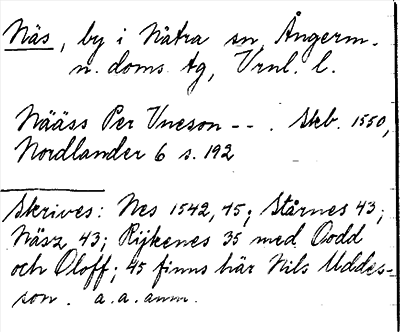 Näs, by i Nätra sn, Ångerm.
n. doms. tg, Vrnl. l.
Nääss Per Vneson -- . Skb. 1550,
Nordlander 6 s. 192
Skrives: Nes 1542, 45; Stårnes 43;
Näsz 43; Rijkenes 35 med Oodd
och Oloff; 45 finns här Nils Uddes-
son. a.a. anm.